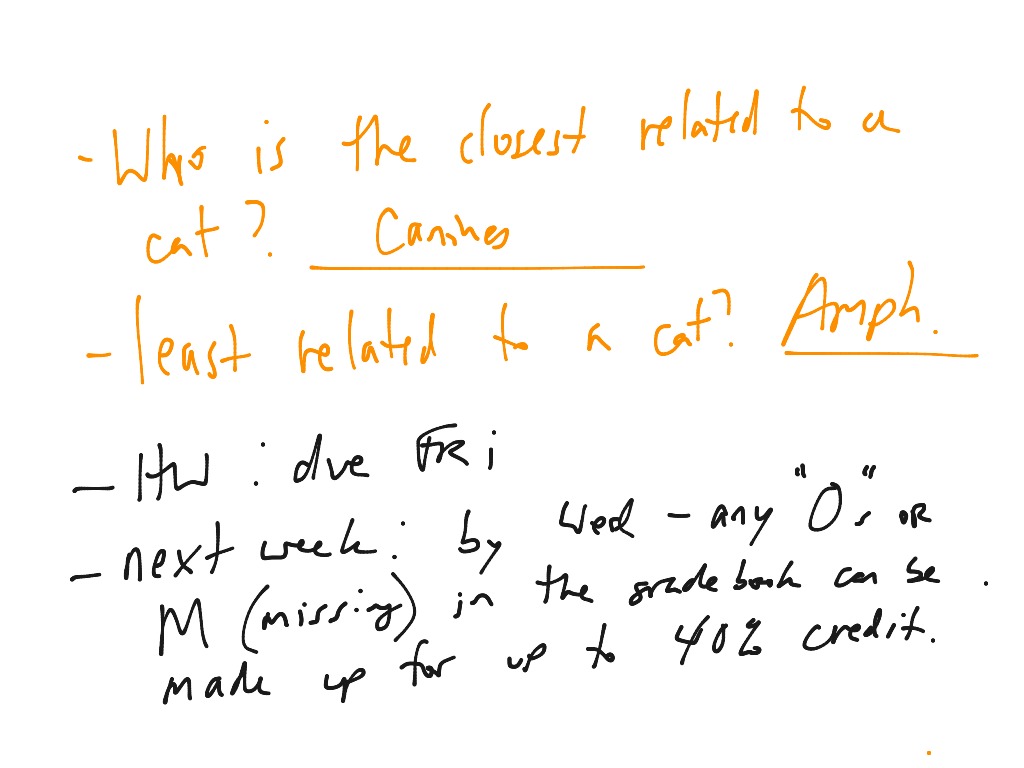 - Who is the closest related to a
cat? Canines
- least related to a cat? Amph.
- HW : due FRi
- next week: by Wed - any "0"s OR
M (missing) in the gradebook can be
made up for up to 40% credit.